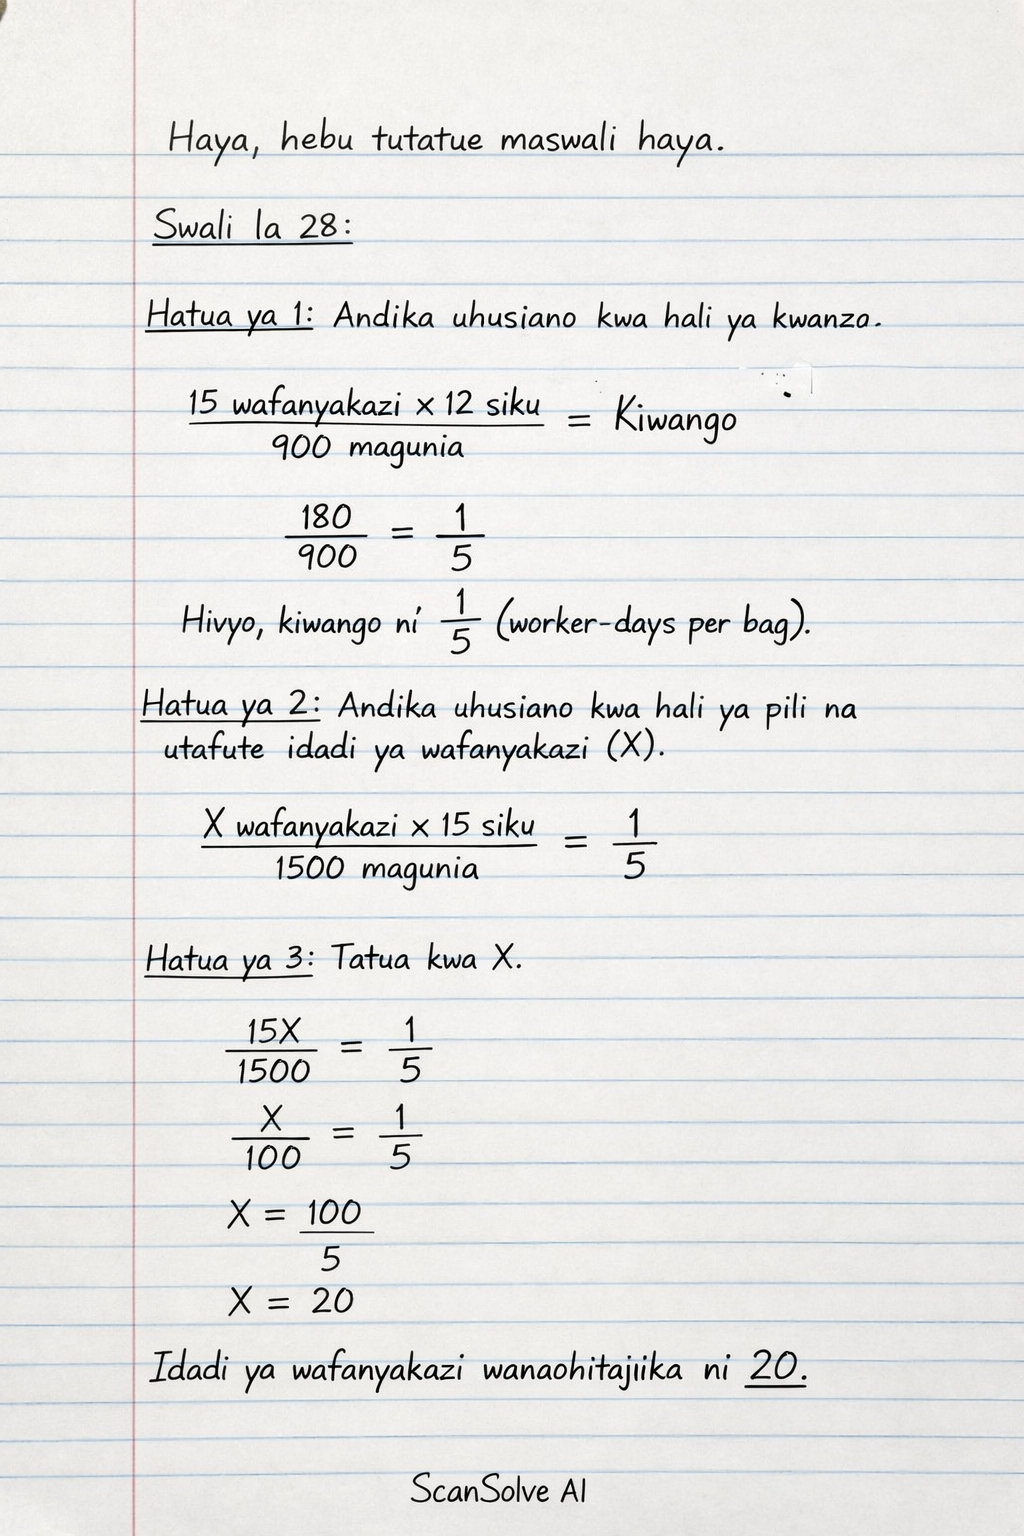 Haya, hebu tutatue maswali haya.
Swali la 28:
Hatua ya 1: Andika uhusiano kwa hali ya kwanza.
15 wafanyakazi × 12 siku / 900 magunia = Kiwango
180 / 900 = 1 / 5
Hivyo, kiwango ni 1/5 (worker-days per bag).
Hatua ya 2: Andika uhusiano kwa hali ya pili na
utafute idadi ya wafanyakazi (X).
X wafanyakazi × 15 siku / 1500 magunia = 1 / 5
Hatua ya 3: Tatua kwa X.
15X / 1500 = 1 / 5
X / 100 = 1 / 5
X = 100 / 5
X = 20
Idadi ya wafanyakazi wanaohitajiika ni 20.
ScanSolve AI